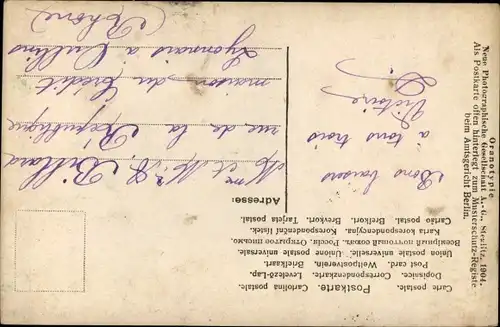 Oranotypie
Neue Photographische Gesellschaft A.-G., Steglitz, 1904.
Als Postkarte offen hinterlegt zum Musterschutz-Registe
beim Amtsgericht Berlin.
Carte postale. Postkarte. Cartolina postale.
Dopisnice. Correspondenzkarte. Levelező-Lap.
Post card. Weltpostverein. Briefkaart.
Union postale universelle. Unione postale universale.
Всемірный почтовый союзъ. Россія. Открытое письмо.
Karta korespondencyjna. Korespondenční lístek.
Cartão postal. Brefkort. Brevkort. Tarjeta postal.
Adresse:
Bons baisers
à tous trois
Victoire
Mme et Mr Billard
rue de la République
maison du Crédit
Lyonnais à Oullins
Rhône